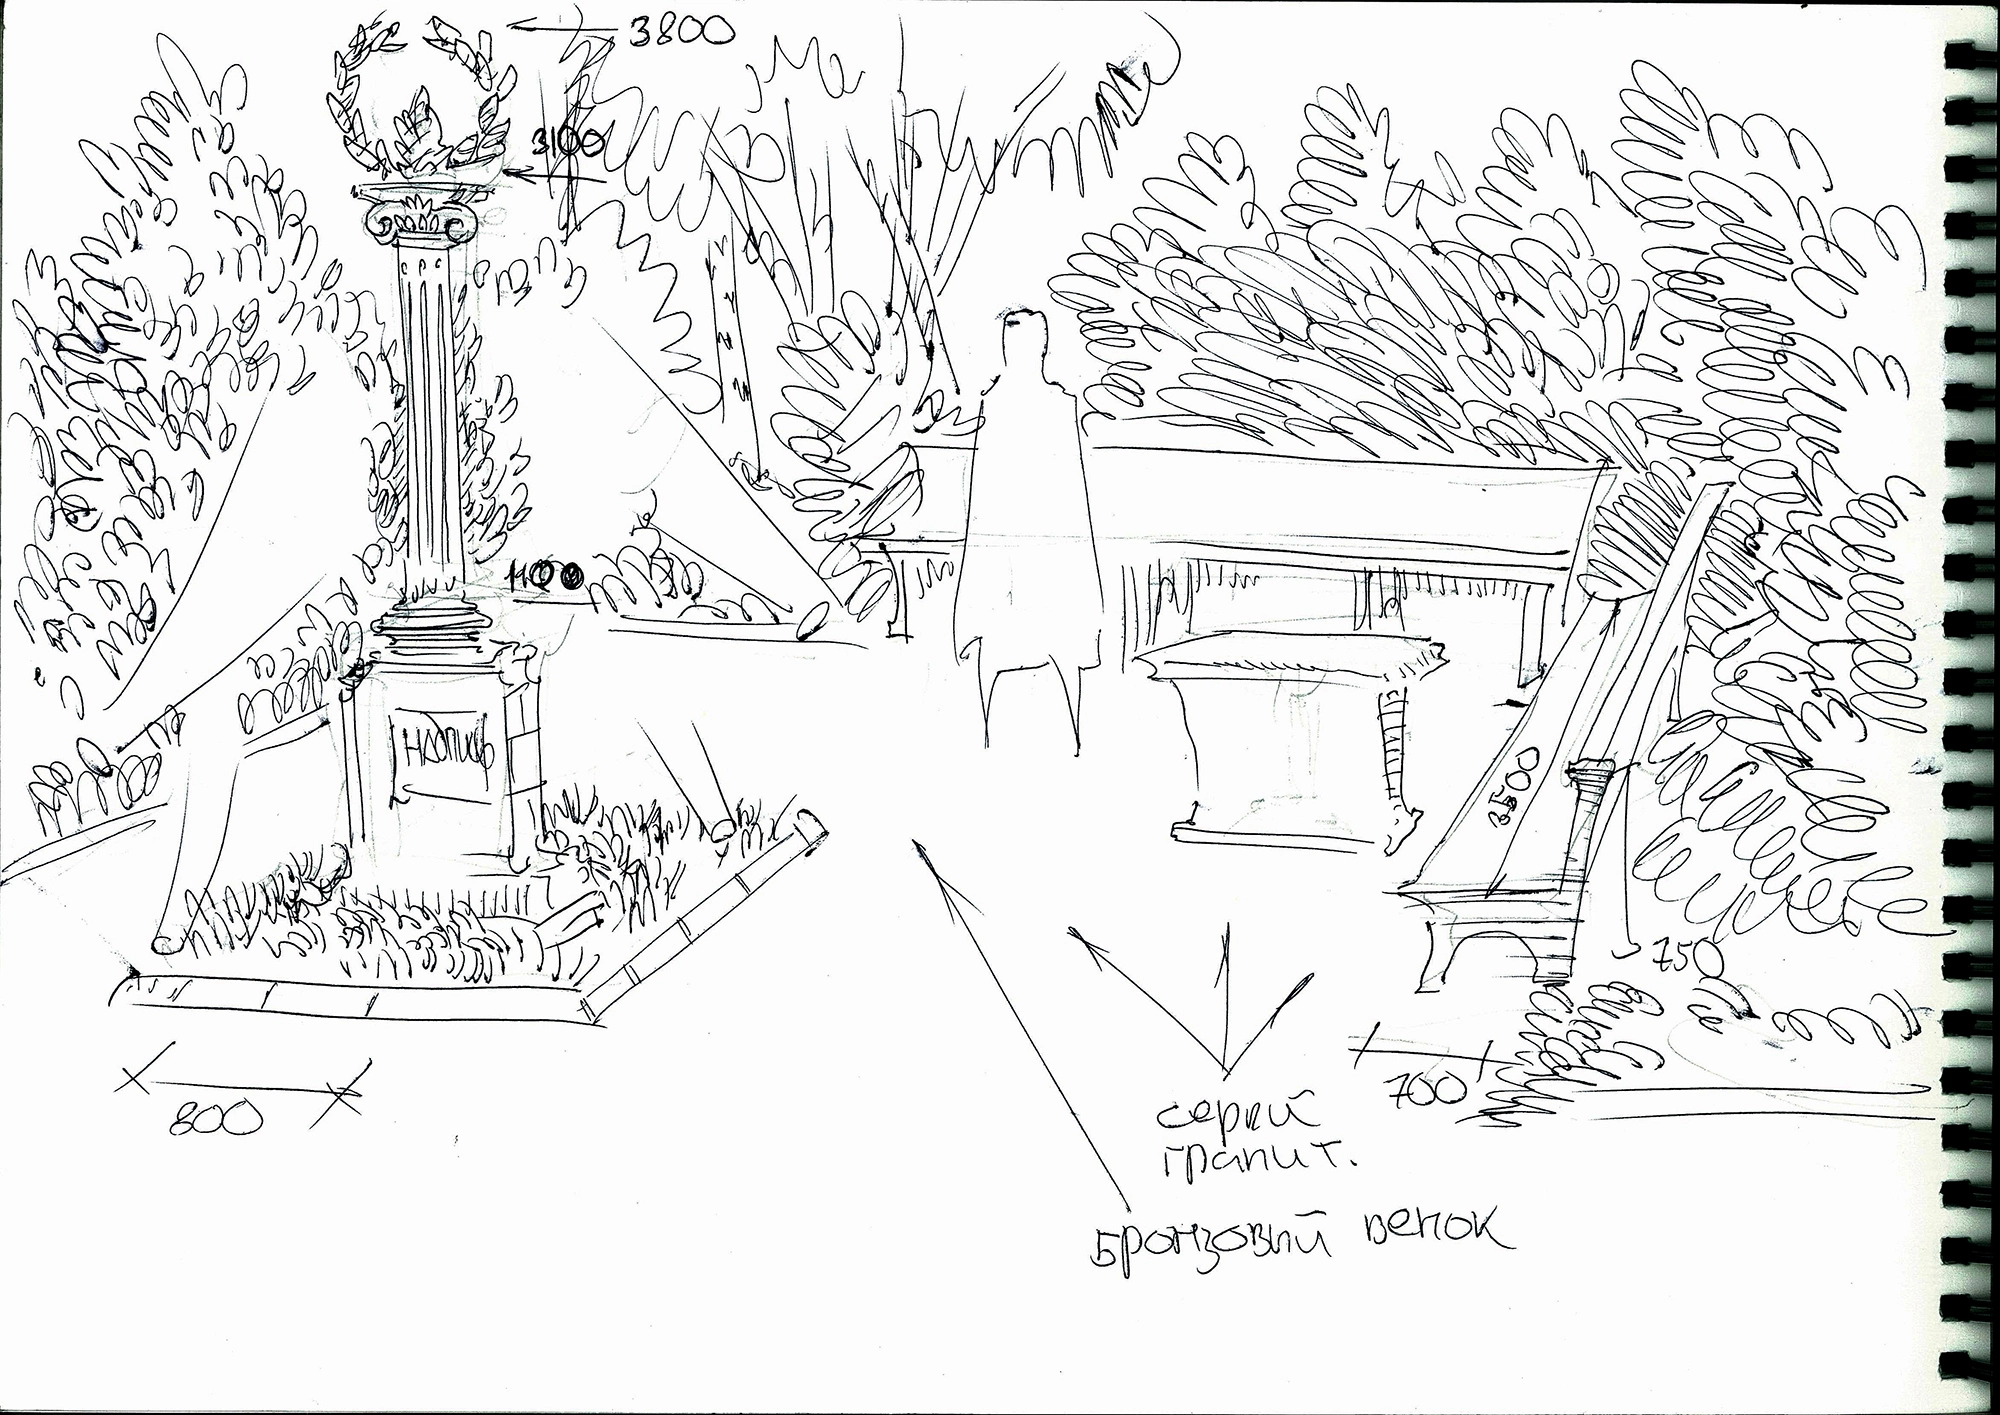 3800
3100
1100
надпись
3500
750
800
700
серый
гранит.
бронзовый венок